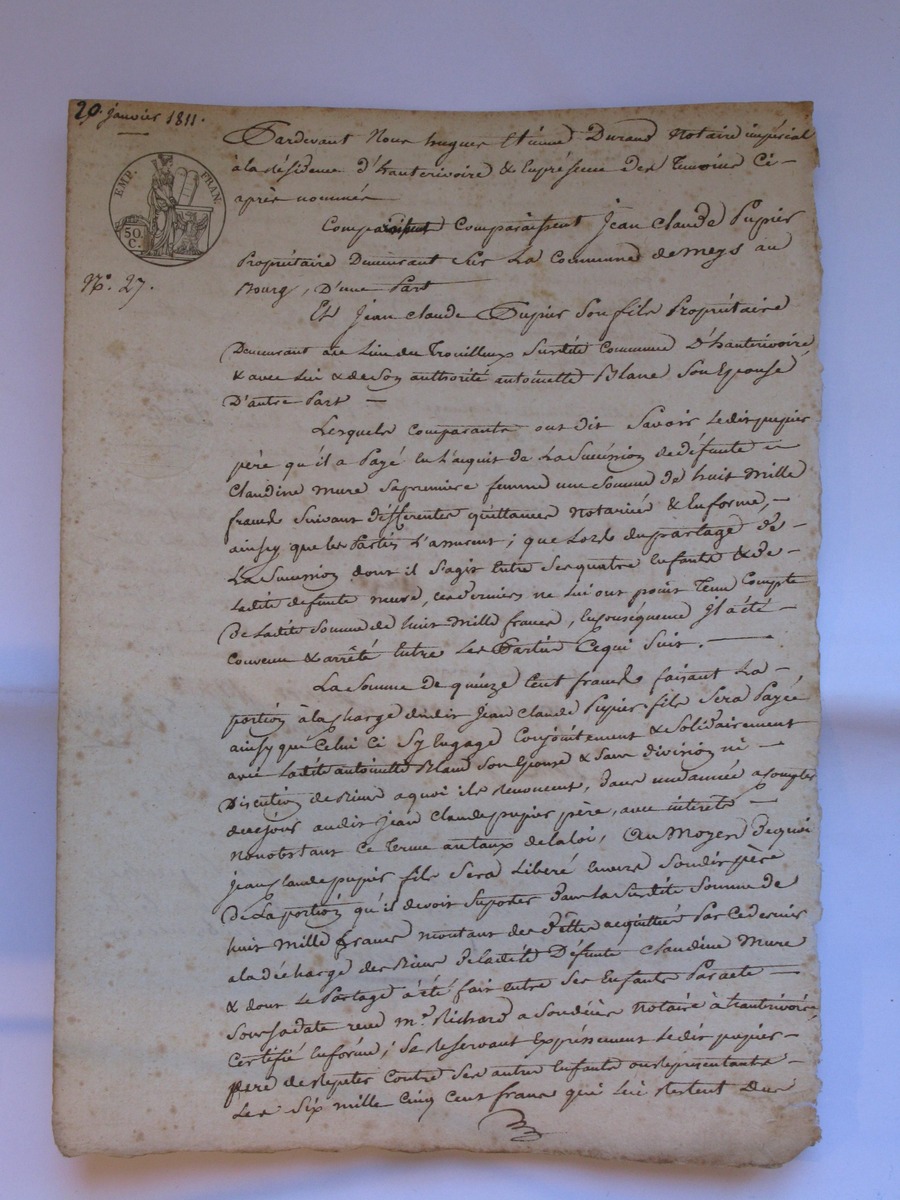 29. janvier 1811.
EMP. FRAN.
50 C.
N.° 27.
Pardevant Nous hugues Etienne Durand Notaire impérial
à la Résidence d'hauterivoire & En présence des Temoins Ci-
après nommés
Comparaissent Jean Claude Pupier
Propriétaire Demeurant Sur La Commune de meys au
Bourg, D'une Part
Et Jean Claude Pupier Son fils Propriétaire
Demeurant au Lieu du Trouilleux Surdite Commune D'hauterivoire
& avec Lui & de Son authorité antoinette Blanc Son Epouse
D'autre Part —
Lesquels Comparants ont dit Savoir Ledit pupier
père qu'il a Payé En L'acquit de La Succession de défunte
Claudine mure Sa premiere femme une Somme de huit Mille
francs Suivant différentes quittances notariées & En forme, —
ainsy que les Parties L'assurent ; que Lors du partage de
La Succession dont il S'agit Entre Ses quatre Enfants & de
Ladite defunte mure, ces derniers ne Lui ont point Tenu Compte
De Ladite Somme de huit Mille francs, En Conséquence Il a été
Convenu & arrêté Entre Les Parties Ce qui Suit. —
La Somme de quinze Cent francs faisant La
portion à la Charge dudit Jean Claude Pupier fils Sera Payée
ainsy que Celui Ci S'y Engage Conjointement & Solidairement
avec Ladite antoinette Blanc Son Epouse & Sans division ni —
Discution de Biens a quoi ils Renoncent, dans une année a Compter
de ce jour audit Jean Claude pupier père, avec intérêts —
nonobstant Ce Terme au taux de la loi, Au Moyen de quoi
Jean Claude pupier fils Sera Libéré Envers Sondit père
De La portion qu'il devoit Suporter dans La Surdite Somme de
huit Mille francs montant des Dettes acquittées Par Ce dernier
a la décharge des Biens de Ladite Défunte Claudine Mure
& dont Le Partage a été fait entre Ses Enfants Par acte —
Sous Sa date reçu M.e Richard a Notaire à hauterivoire,
Certifié En forme ; Se Reservant Expressement Ledit pupier —
père de Repeter Contre Ses autres Enfants ou Représentants —
Les Six mille Cinq Cent francs qui Lui Restent Dus